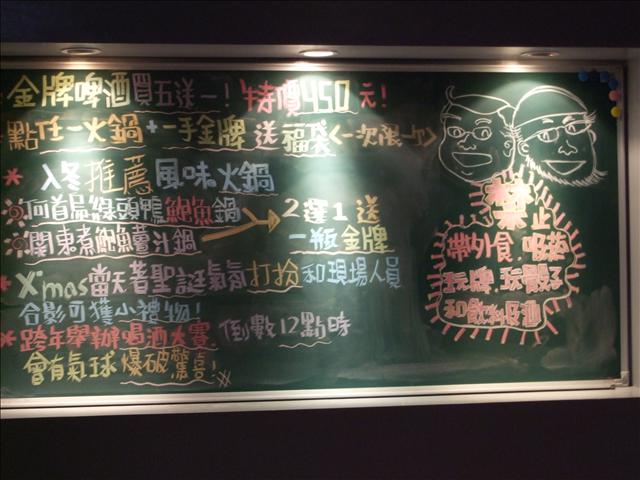 金牌啤酒買五送一!特價450元!
點任一火鍋+一手金牌送福袋<一次限一>
* 入冬推薦風味火鍋
何首烏綠頭鴨鮑魚鍋
關東煮鮑魚薑汁鍋
2選1送
一瓶金牌
* X'mas當天著聖誕氣氛打扮和現場人員
合影可獲小禮物!
* 跨年舉辦喝酒大賽,倒數12點時
會有氣球爆破驚喜!
禁止
帶外食.吸菸
玩牌.玩骰子
和飲料及酒